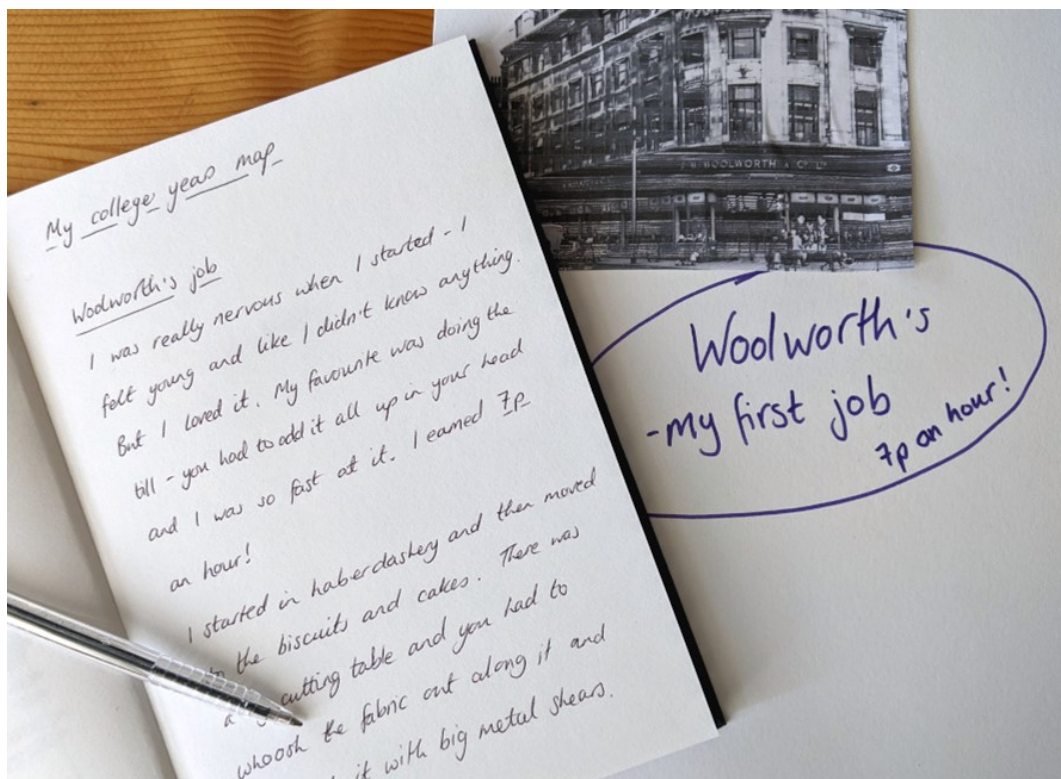 My college years map
Woolworth's job
I was really nervous when I started - I
felt young and like I didn't know anything.
But I loved it. My favourite was doing the
till - you had to add it all up in your head
and I was so fast at it. I earned 7p
an hour!
I started in haberdashery and then moved
to the biscuits and cakes. There was
a cutting table and you had to
whoosh the fabric out along it and
it with big metal shears.
F. W. WOOLWORTH & CO. LTD
Woolworth's
- my first job
7p an hour!